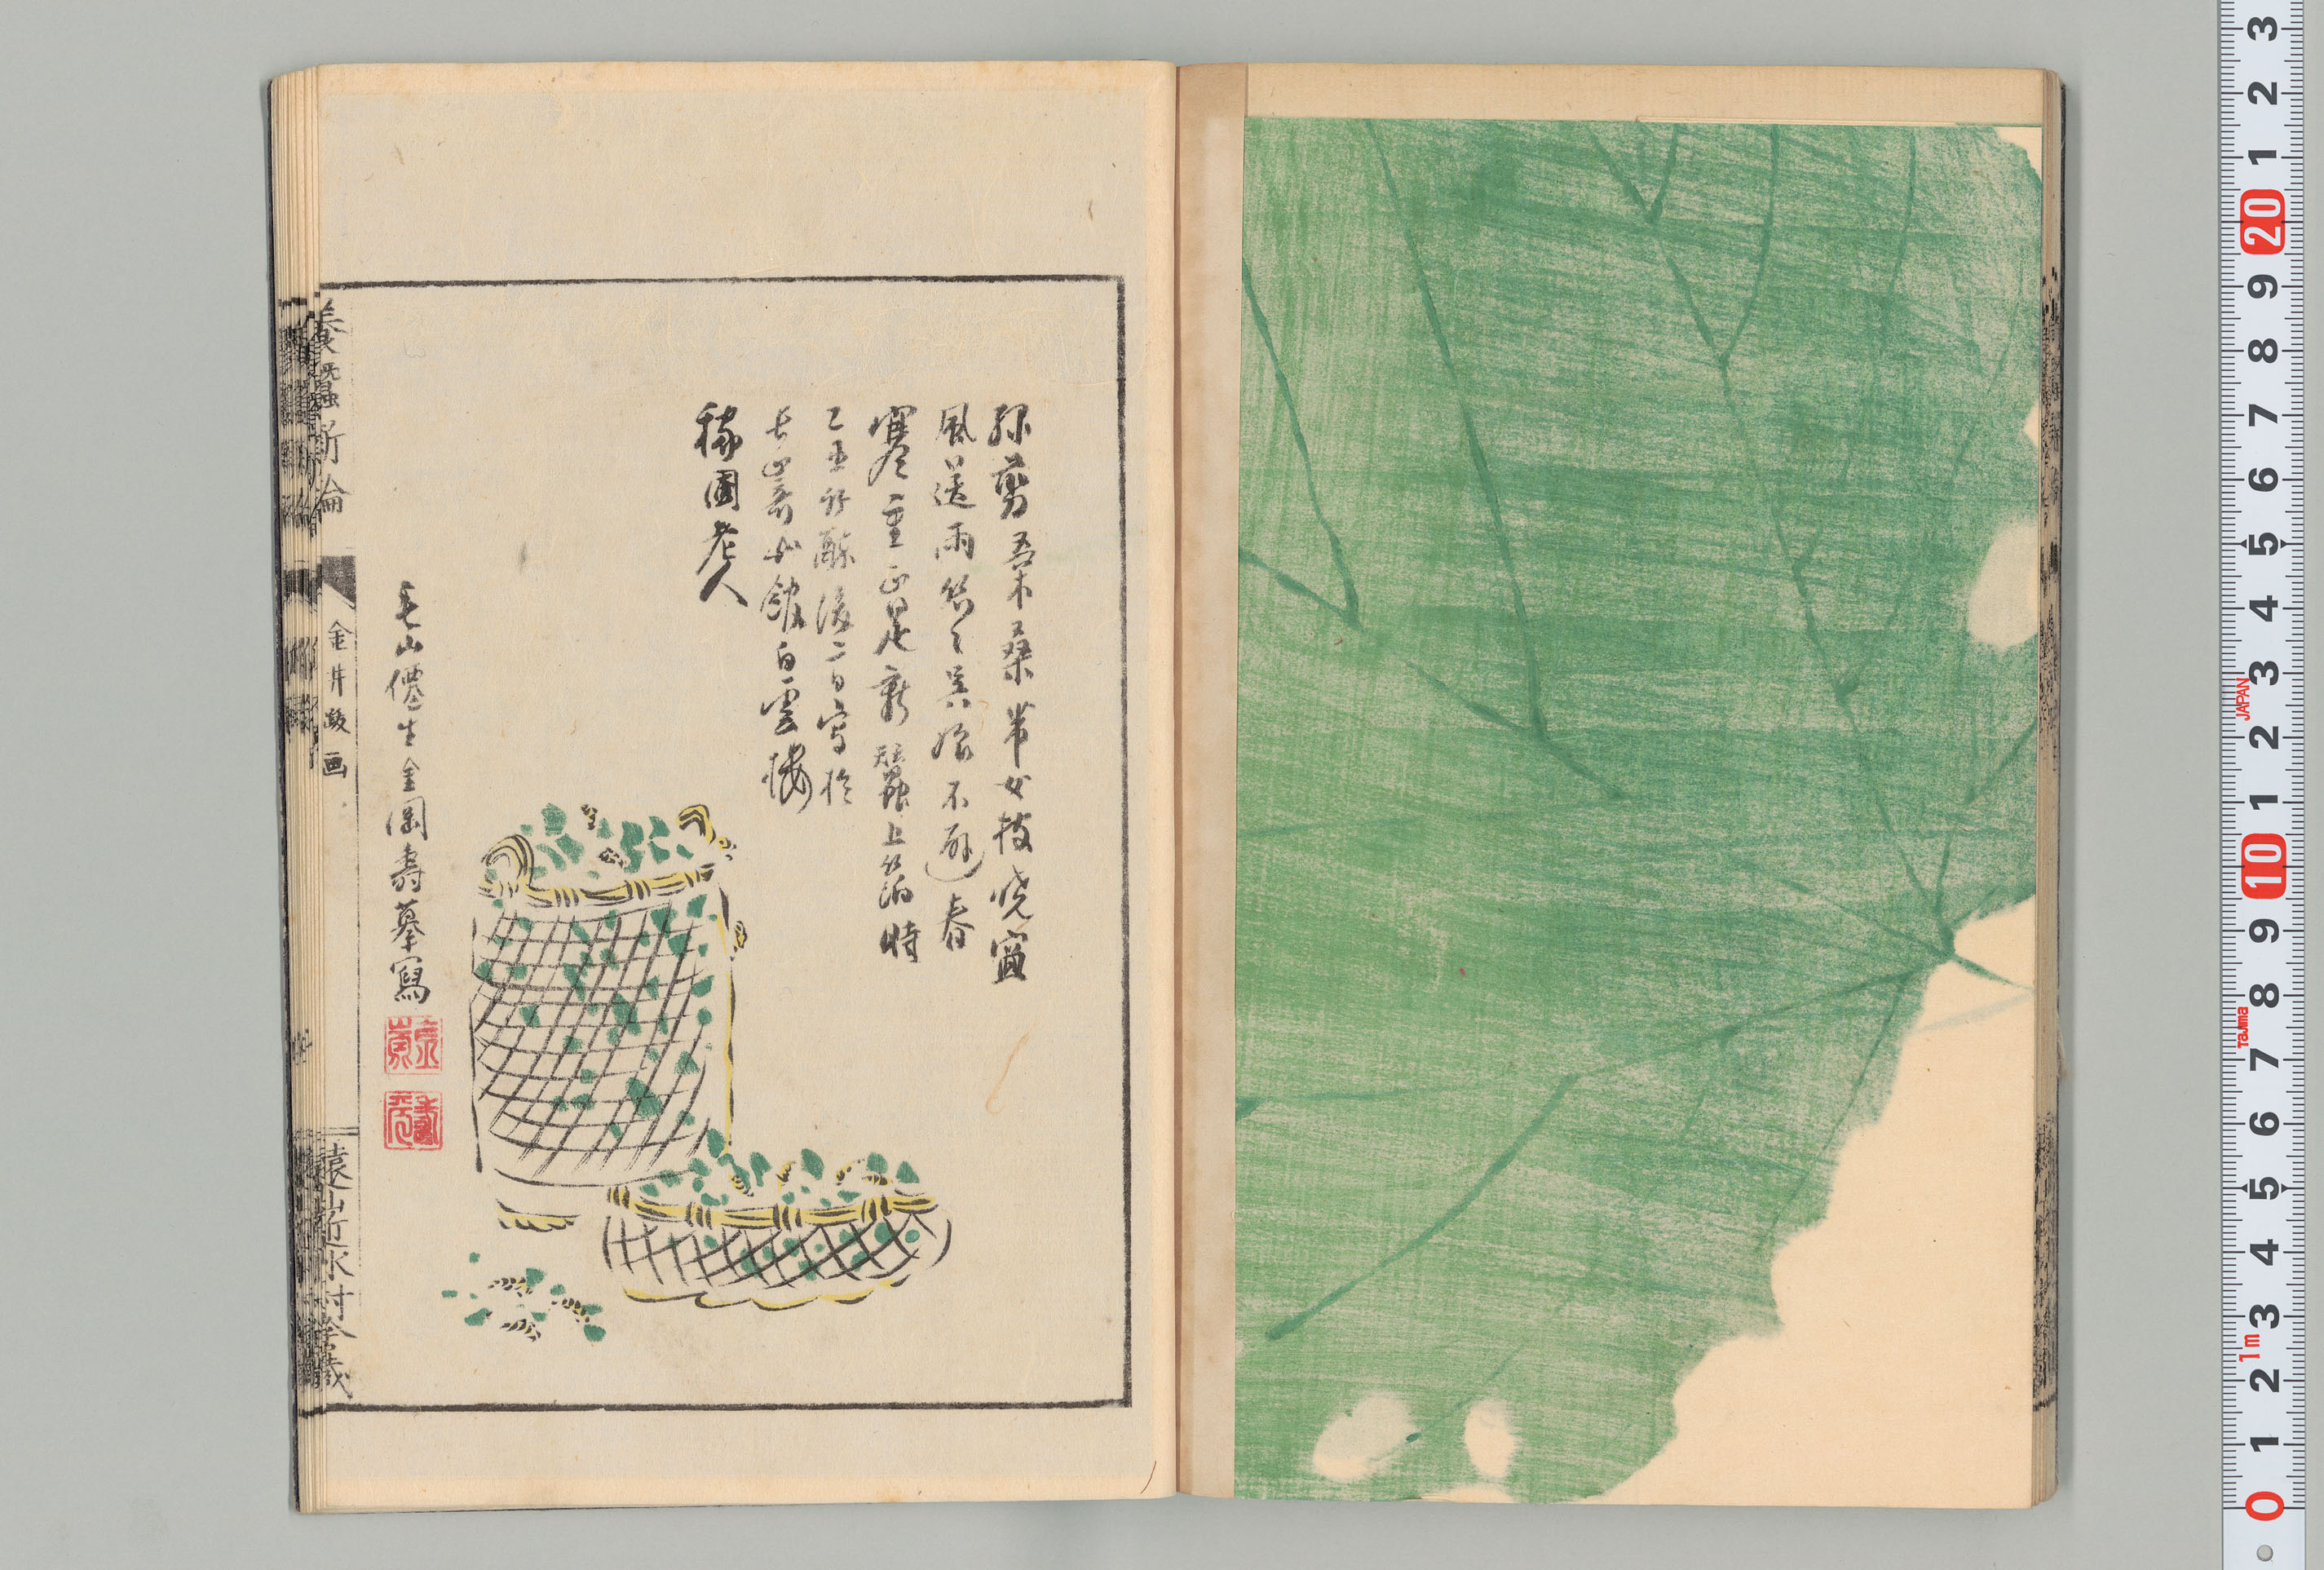 剪柔桑帶女枝曉窗
風送雨絲々吳娘不避春
寒重正是新蠶上箔時
乙丑竹醉後二日寫於
長崎 館白雲樓
稼圃老人
毛山僊生金岡壽摹寫
養蠶新論
金井 画
遠山近水村舍藏
3
2
1
20
9
8
7
6
5
4
3
JAPAN
2
1
10
9
8
Tajima
7
6
5
4
3
1m
2
1
0